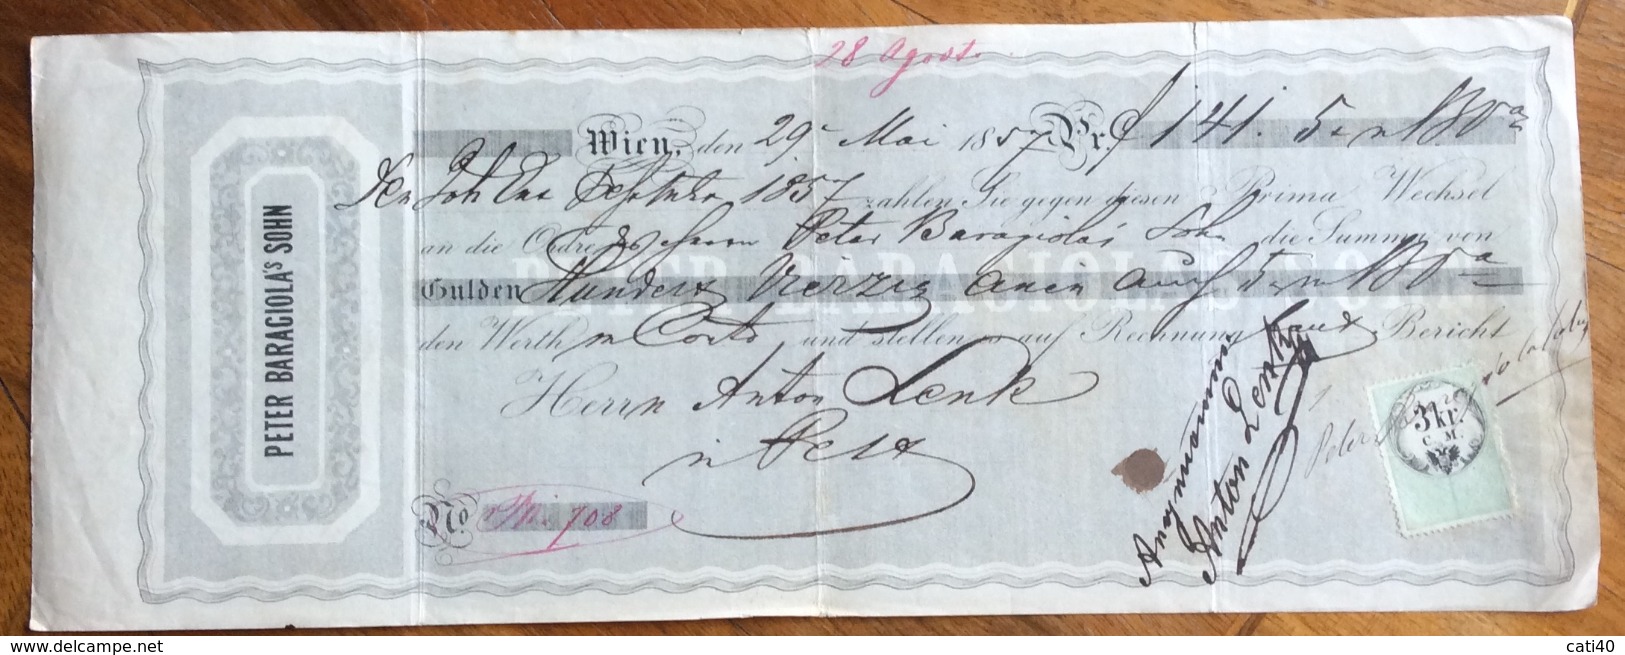 28 Agosto
Wien, den 29 Mai 1857 Pr. f 141.
Den 1857 zahlen Sie gegen diesen Prima Wechsel
an die Ordre Herrn Peter Baragiola's Sohn die Summe von
Gulden Hundert Vierzig ein auf
den Werth in Conto und stellen auf Rechnung laut Bericht
Herrn Anton Lenk
in Pest
No 708
PETER BARAGIOLA'S SOHN
PETER BARAGIOLA'S SOHN
Angenommen
Anton Lenk
Peter
3 KR.
C. M.
cati40